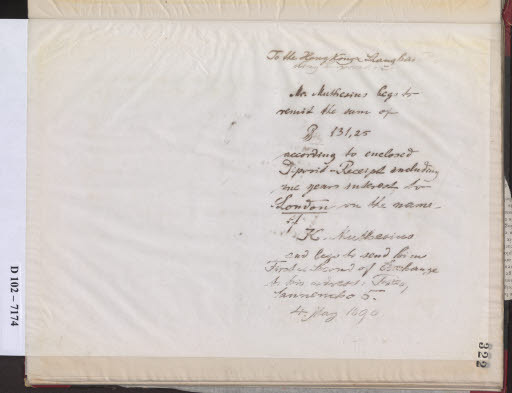 To the Hong Kong & Shanghai
Mr. Muthesius begs to
remit the sum of
$ 131,25
according to enclosed
Deposit-Receipt including
one years interest to
London on the name
of
H. Muthesius
and begs to send him
First & Second of Exchange
to his adress: Tokyo,
Sannencho 5.
May 1890
D 102-7174
322